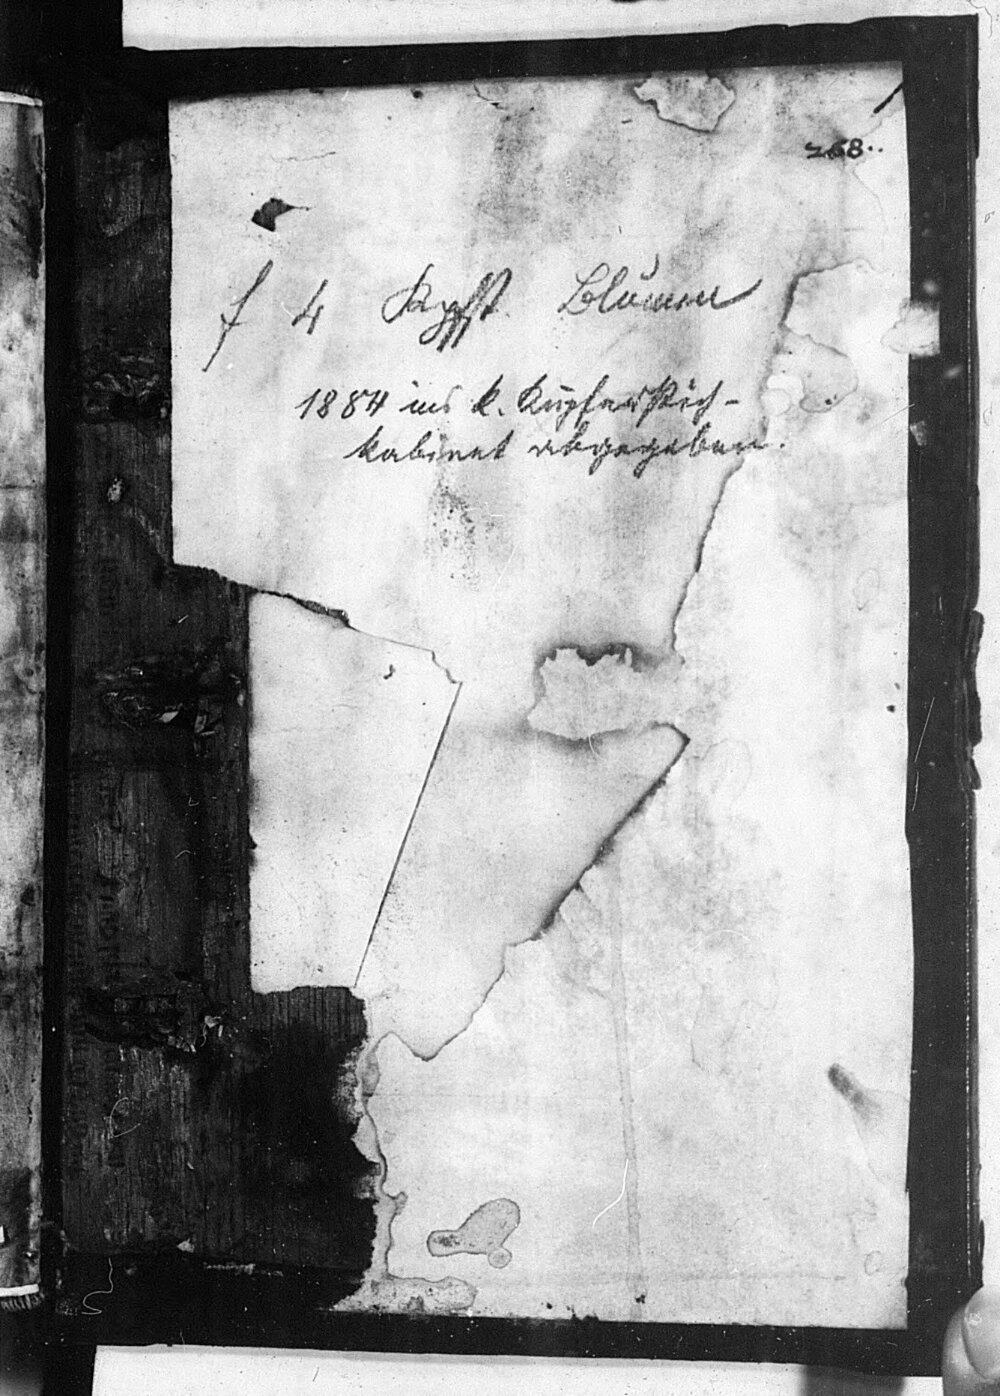 268..
f 4 Kpfst. Blumen
1884 ins k. Kupferstich-
kabinet abgegeben.